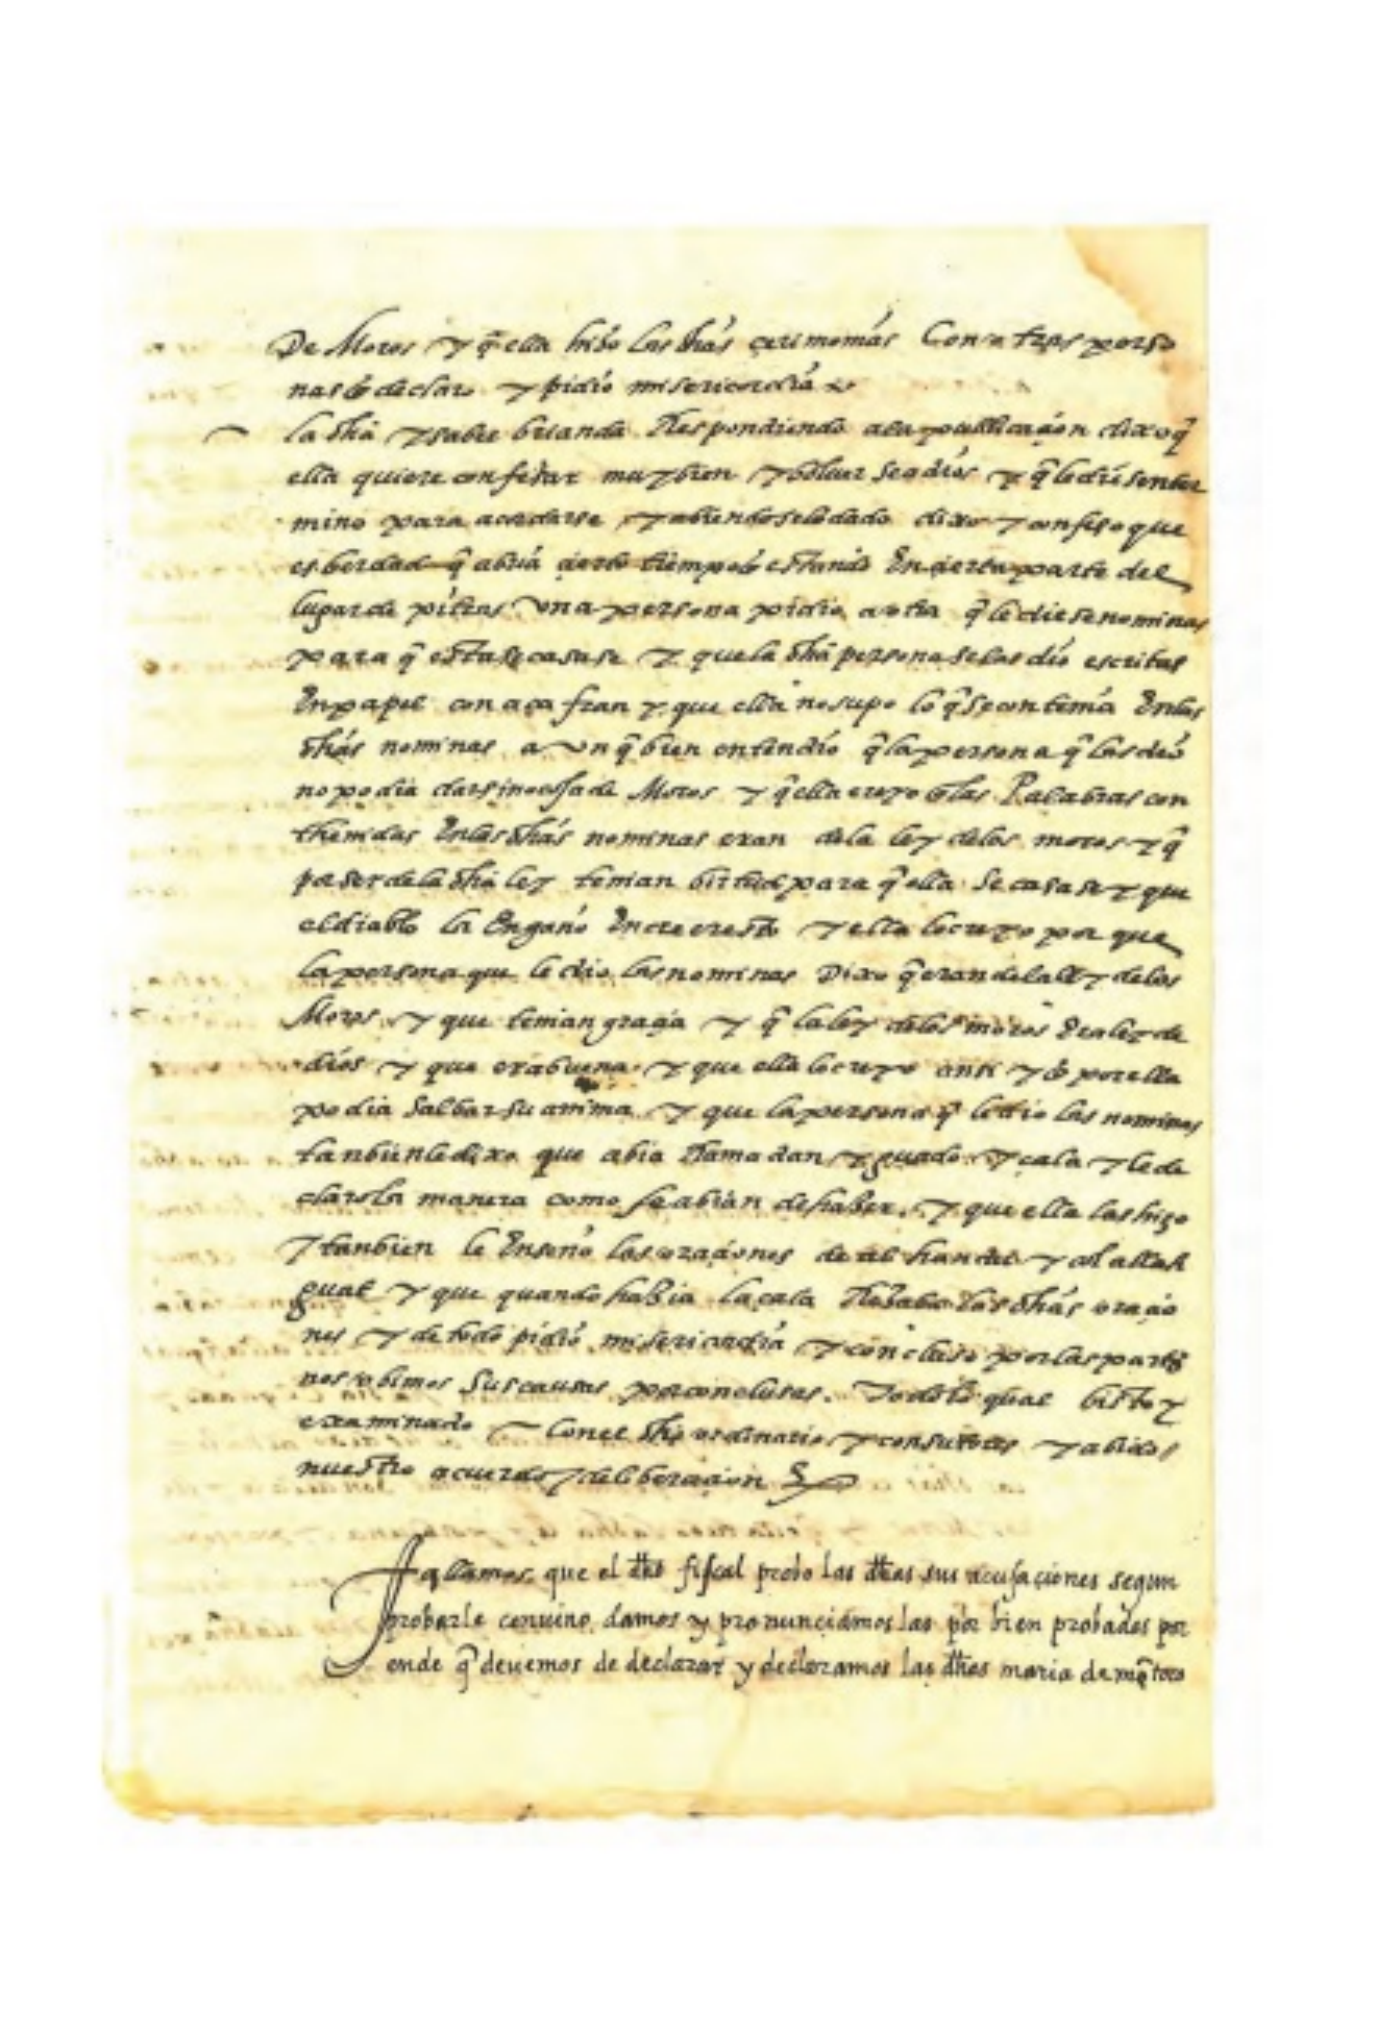 De Moros y q̃ ella hizo las dhãs çerimonias Con otras perso
nas q̃ declaro y pidio misericordia
la dhã ysabel brianda Respondiendo a la publicaçion dixo q̃
ella quiere confesar muy bien y bolver se a dios y q̃ le diesen ter
mino para acordarse y abiendoselo dado dixo y confeso que
es berdad q̃ abria çierto tiempo q̃ estando En çierta parte del
lugar de pitras Una persona pidio a otra q̃ le diese nominas
para q̃ esta se casase y que la dhã persona se las dio escritas
En papel con açafran y que ella no supo lo q̃ se contenia En las
dhãs nominas aunq̃ bien entendio q̃ la persona q̃ las dio
no podia dar sino cosa de Moros y q̃ ella creyo q̃ las Palabras con
thenidas En las dhãs nominas eran de la ley de los moros y q̃
por ser de la dhã ley tenian birtud para q̃ ella se casase y que
el diablo la Engaño En creer esto y ella lo creyo por que
la persona que le dio las nominas Dixo q̃ eran de la ley de los
Moros y que tenian graçia y q̃ la ley de los moros Era ley de
dios y que era buena y que ella lo creyo ansi y q̃ por ella
podia salbar su anima y que la persona q̃ le dio las nominas
tanbien le dixo que abia Ramadan y guado y çala y le de
claro la manera como se abian de haber y que ella las hizo
y tanbien le Enseño las oraçiones de al handu y col alla
guat y que quando hazia la çala Rezaba las dhãs oraçio
nes y de todo pidio misericordia y concluso por las partes
nos obimos sus causas por conclusas. Todo lo qual bisto y
examinado Con el dhõ ordinario y consultores y abidos
nuestro acuerdo y deliberaçion
fallamos que el dhõ fiscal probo las dhãs sus acusaçiones segun
probarle conuino, damos y pronunciamos las por bien probadas por
ende q̃ deuemos de declarar y declaramos las dhãs maria de mõtoro